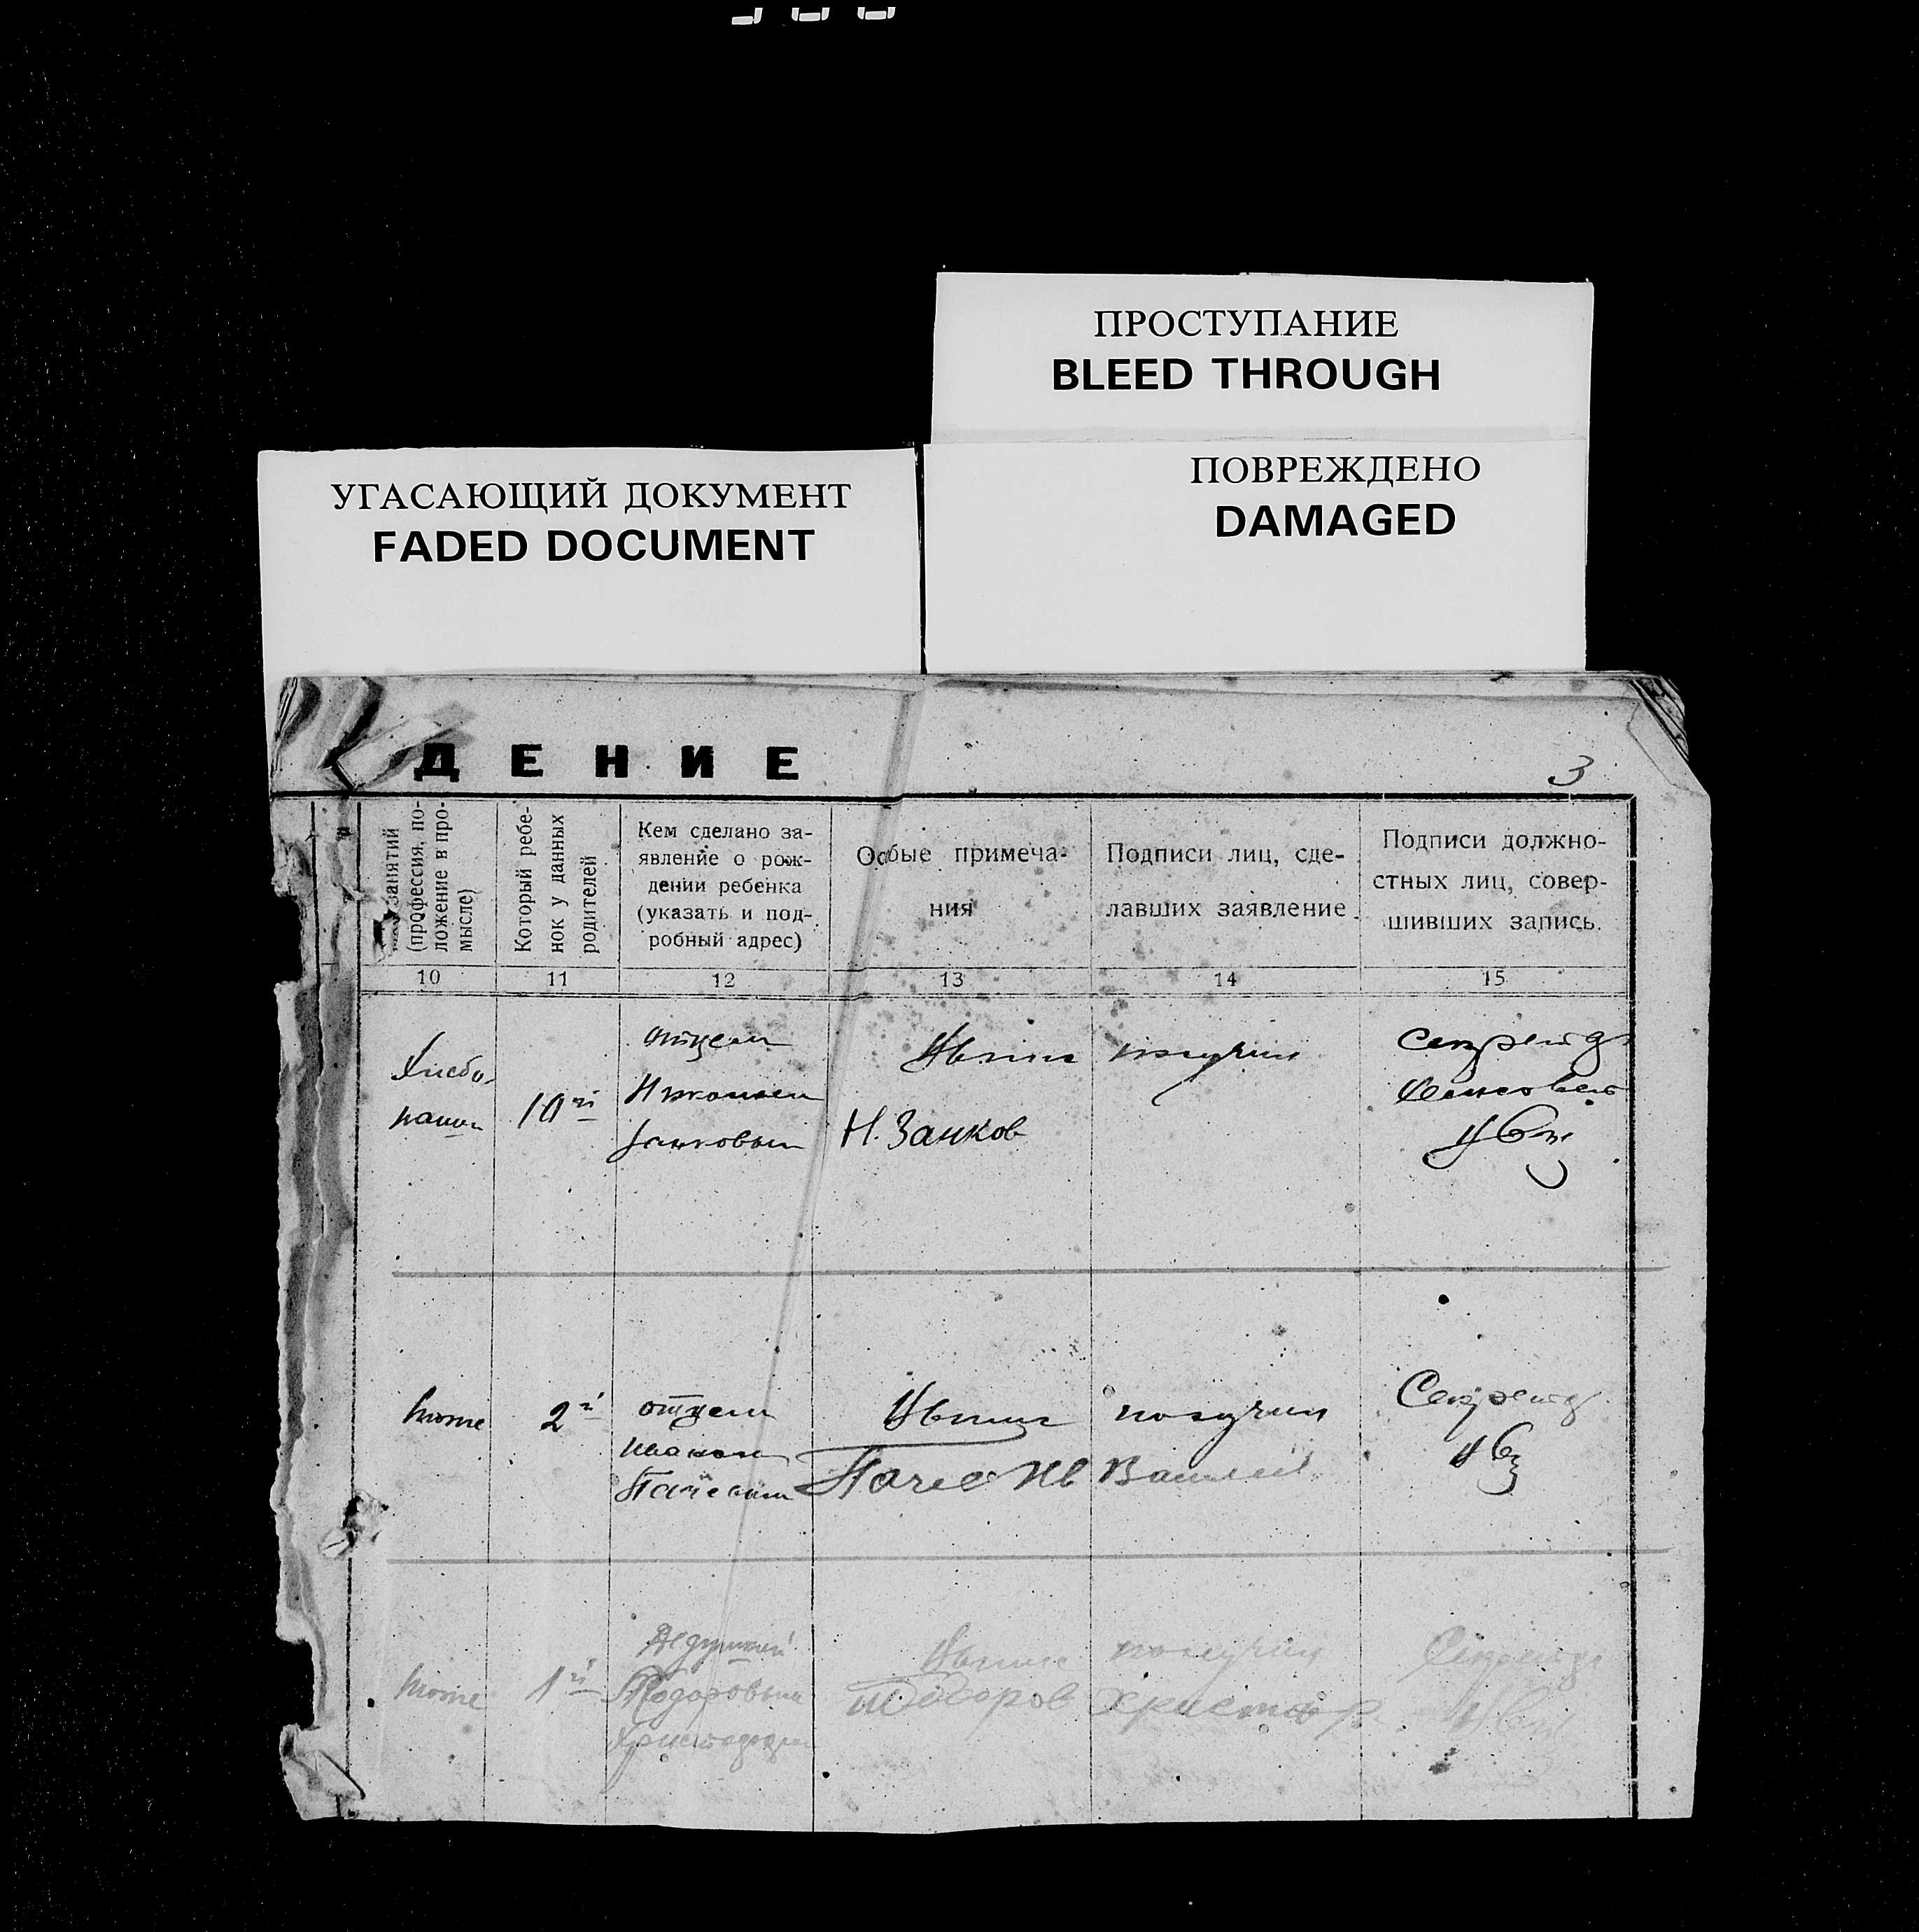 ПРОСТУПАНИЕ
BLEED THROUGH
УГАСАЮЩИЙ ДОКУМЕНТ
FADED DOCUMENT
ПОВРЕЖДЕНО
DAMAGED
ДЕНИЕ
3
занятий
(профессия, по-
ложение в про-
мысле)
Который ребе-
нок у данных
родителей
Кем сделано за-
явление о рож-
дении ребенка
(указать и под-
робный адрес)
Особые примеча-
ния
Подписи лиц, сде-
лавших заявление
Подписи должно-
стных лиц, совер-
шивших запись.
10
11
12
13
14
15
Хлебо-
пашец
10й
отцем
Николаем
Занковым
получил
Н. Занков
Секретарь
тоже
2й
отцем
Иваном
получил
Секретарь
тоже
1й
Дедушкой
Тодоровым
получил
Тодоров
Секретарь